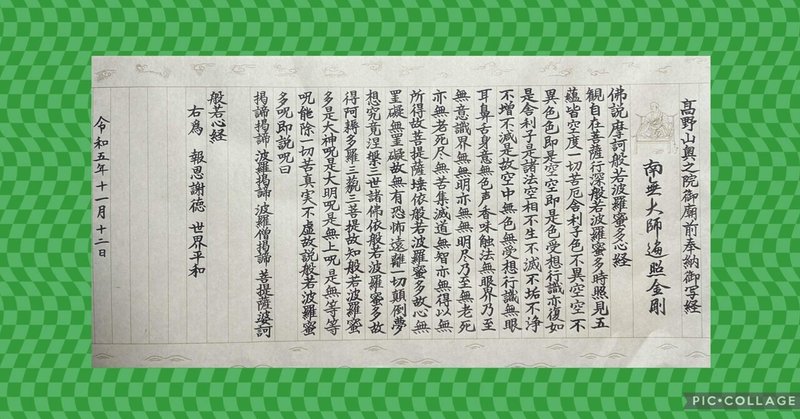 高野山奥之院御廟前奉納御写経
南無大師遍照金剛
佛説摩訶般若波羅蜜多心経
観自在菩薩行深般若波羅蜜多時照見五
蘊皆空度一切苦厄舎利子色不異空空不
異色色即是空空即是色受想行識亦復如
是舎利子是諸法空相不生不滅不垢不浄
不増不減是故空中無色無受想行識無眼
耳鼻舌身意無色声香味触法無眼界乃至
無意識界無無明亦無無明尽乃至無老死
亦無老死尽無苦集滅道無智亦無得以無
所得故菩提薩埵依般若波羅蜜多故心無
罣礙無罣礙故無有恐怖遠離一切顛倒夢
想究竟涅槃三世諸佛依般若波羅蜜多故
得阿耨多羅三藐三菩提故知般若波羅蜜
多是大神呪是大明呪是無上呪是無等等
呪能除一切苦真実不虚故説般若波羅蜜
多呪即説呪曰
掲諦掲諦 波羅掲諦 波羅僧掲諦 菩提薩婆訶
般若心経
右為 報恩謝徳 世界平和
令和五年十一月十二日
PIC•COLLAGE